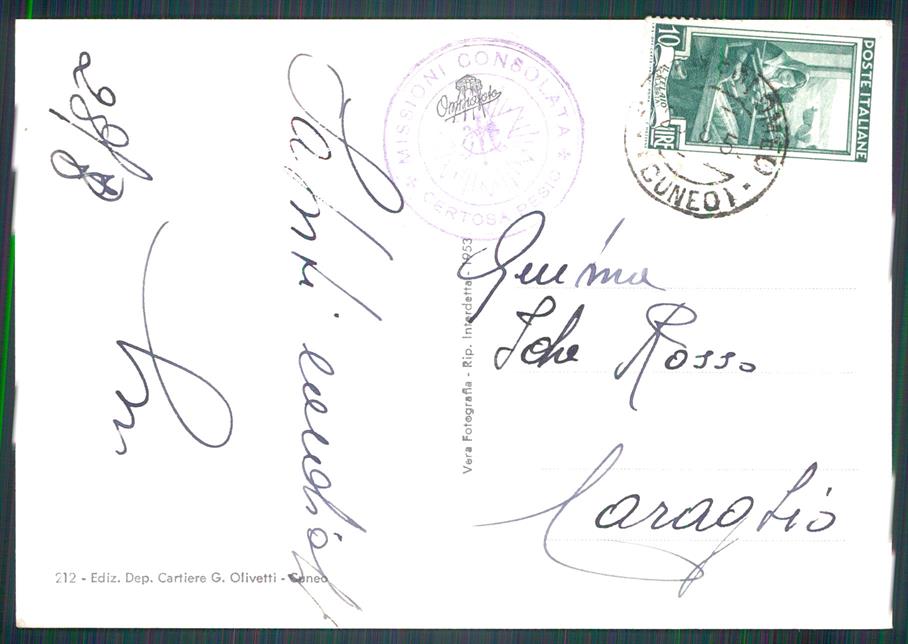 28/8
Saluti cordiali
MISSIONI CONSOLATA
* CERTOSA PESIO *
10
LIRE
POSTE ITALIANE
(CUNEO)
Vera Fotografia - Rip. Interdetta - 1953
Rosso
Caraglio
212 - Ediz. Dep. Cartiere G. Olivetti - Cuneo